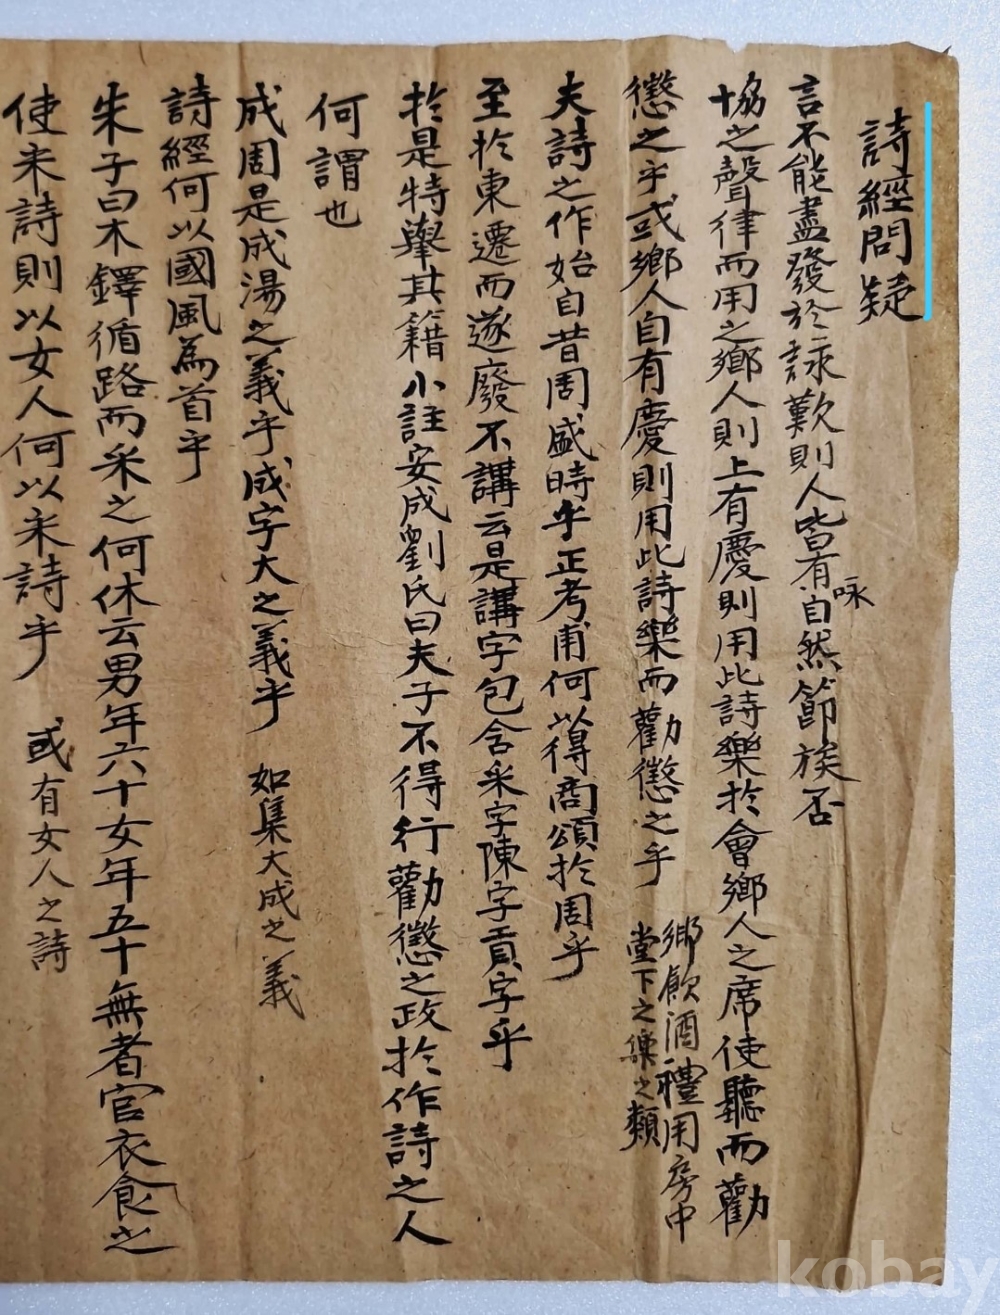 詩經問疑
言不能盡發於詠歎則人皆有自然節族否
咏
協之聲律而用之鄉人則上有慶則用此詩樂於會鄉人之席使聽而勸
懲之乎或鄉人自有慶則用此詩樂而勸懲之乎
鄉飮酒禮用房中
堂下之樂之類
夫詩之作始自昔周盛時乎正考甫何以得商頌於周乎
至於東遷而遂廢不講云是講字包含采字陳字貢字乎
於是特擧其籍小註安成劉氏曰夫子不得行勸懲之政於作詩之人
何謂也
成周是成湯之義乎成字大之義乎 如集大成之義
詩經何以國風為首乎
朱子曰木鐸循路而采之何休云男年六十女年五十無者官衣食之
使采詩則以女人何以采詩乎 或有女人之詩
kobay